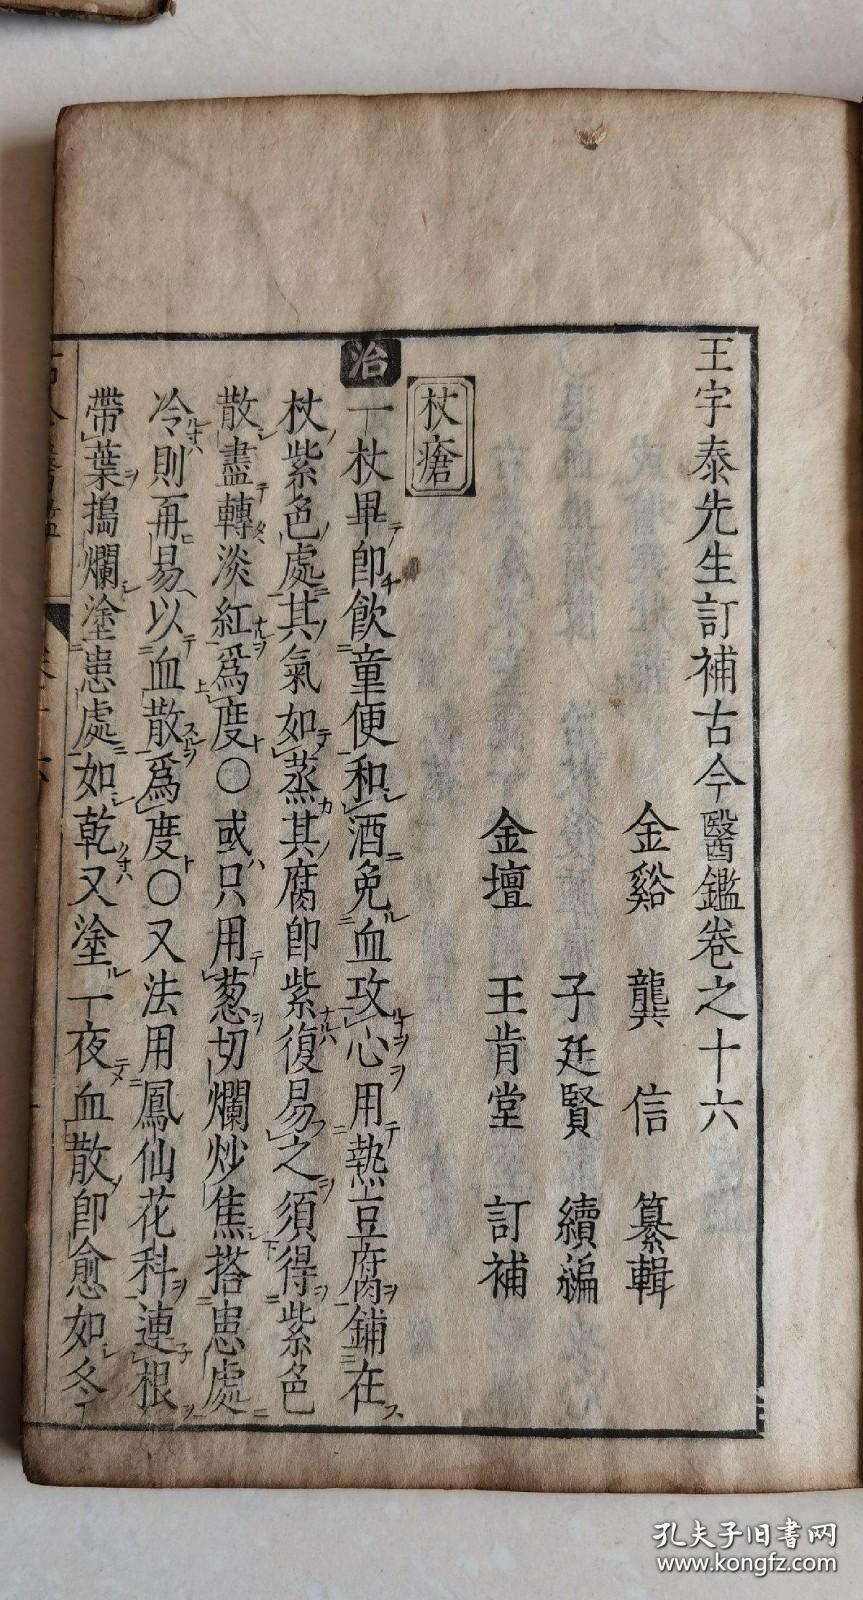 王宇泰先生訂補古今醫鑑卷之十六
金谿 龔信 纂輯
子廷賢 續編
金壇 王肯堂 訂補
杖瘡
治 一杖畢即飲童便和酒免血攻心用熱豆腐鋪在
杖紫色處其氣如蒸其腐即紫復易之須得紫色
散盡轉淡紅爲度○或只用葱切爛炒焦搭患處
冷則再易以血散爲度○又法用鳳仙花科連根
帶葉搗爛塗患處如乾又塗一夜血散即愈如冬
孔夫子旧书网
www.kongfz.com